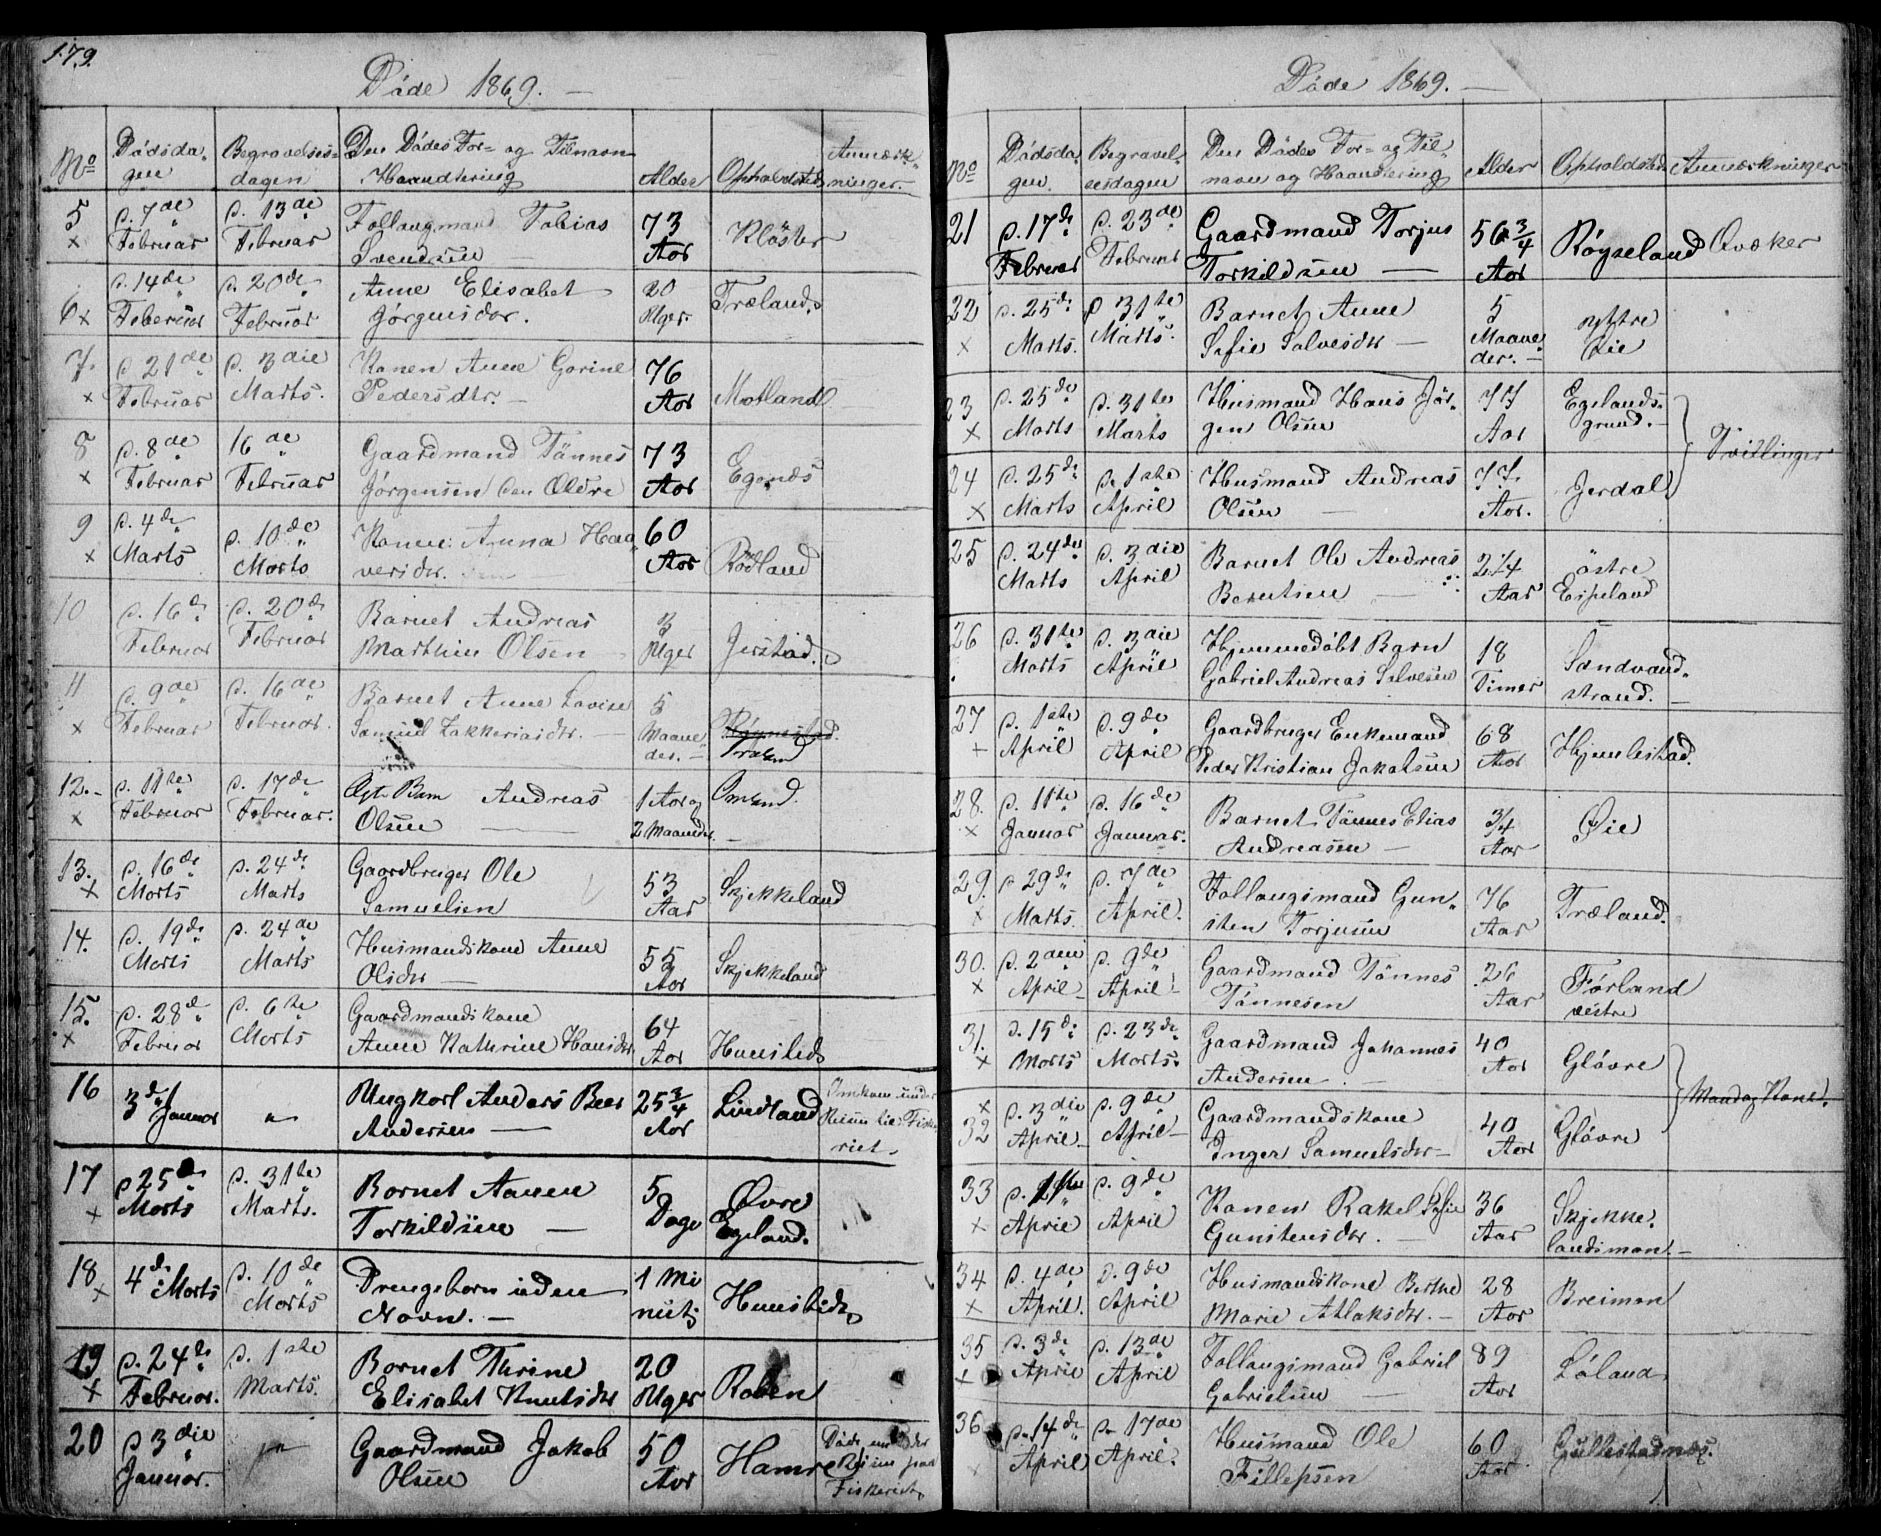 179.
Døde 1869. —
No
Dødsda-
gen
Begravelses-
dagen
Den Dødes For- og Tilnavn
Haandtering
Alder
Opholdsted
Anmærk-
ninger.
5
×
d. 7de
Februar
d. 13de
Februar
Follaugmand Tobias
Svendsen —
73
Aar
Kloster
6×
d. 14de
Feberuar
d. 20de
Februar
Anne Elisabet
Jørgensdtr.
20
Uger.
Træland
7.
×
d 21de
Februar
d. 3die
Marts.
Konen Anne Gorine
Pedersdtr. —
76
Aar
Motland
8
×
d. 8de
Februar
16de
Februar
Gaardmand Tønnes
Jørgensen den Ældre
73
Aar
Egenæs
9
×
d. 4de
Marts
d. 10de
Marts
Konen Anna Haa-
versdtr.
60
Aar
Rødland
10
d. 16de
Februar
d. 20de
Februar
Barnet Andreas
Marthin Olsen
3
Uger
Jerstad.
11
×
d. 9de
Februar
d. 16de
Februar.
Barnet Anne Lovise
Samuel Zakkeriasdtr. —
5
Maane-
der. —
12. -
×
d. 11te
Februar
d. 17de
Februar.
Ægte Barn Andreas
Olsen —
1 Aar og
2 Maander. —
Omland.
13.
×
d. 16de
Marts
d. 24de
Marts
Gaardbruger Ole
Samuelsen
53
Aar
Skjekkeland
14.
d. 19de
Marts
d. 24de
Marts
Husmandskone Anne
Olsdtr —
55
Aar
Skjekkeland
15.
×
d. 28de
Februar
d. 6te
Marts
Gaardmandskone
Anne Kathrine Hansdtr.
64
Aar
Hunsted
16
3de Januar
"
Ungkarl Anders Beer
Andersen —
25 3/4
Aar
Lindland
Omkom under
Reisen til Fiske-
riet.
17
×
d 25de
Marts
d. 31te
Marts.
Barnet Aanen
Torkildsen —
5
Dage
Øvre
Egeland.
18
×
4de Marts
d. 10de
Marts
Drengebarn uden
Navn. —
1 Mi
nut
Hunsbedt
19
×
d. 24de
Februar.
d. 1ste
Marts.
Barnet Thrine
Elisabet Knutsdtr
20
Uger
Raben
20
d 3die
Januar.
"
Gaardmand Jakob
Olsen
50
Aar
Hamre
Døde under
Reisen paa
Fiskeriet
Døde 1869. —
No
Dødsda-
gen.
Begravel-
sesdagen
Den Dødes For- og Til-
navn og Haandtering
Alder
Opholdsted
Anmærkninger
21
d. 17de
Februar
d. 23de
Februar
Gaardmand Torjus
Torkildsen —
56 3/4
Aar
Røyseland
Qvæker
22
×
d. 25de
Marts.
d 31te
Marts.
Barnet Anne
Sofie Salvesdtr —
5
Maane-
der. —
yttre
Øie
23
×
d. 25de
Marts
d. 31te
Marts
Husmand Hans Jør-
gen Olsen
77
Aar
Egelands-
grund. —
Tvillinger
24
×
d. 25de
Marts
d. 1ste
April
Husmand Andreas
Olsen —
77.
Aar.
Jerdal
25
d. 24de
Marts
d. 3die
April
Barnet Ole Andreas
Berntsen —
2 1/4
Aar
østre
Espeland
26
d. 31te
Marts
d. 3die
April
Hjemmedøbt Barn
Gabriel Andreas Salvesen
18
Timer
Sandvand-
strand. —
27
×
d. 1ste
April
d. 9de
April
Gaardbruger Enkemand
Peder Kristian Jakobsen
68
Aar
Hjemlestad.
28.
×
d. 11te
Januar
d. 16de
Januar.
Barnet Tønnes Elias
Andreasen —
3/4
Aar
Øie
29.
×
d 29de
Marts.
d. 7de
April.
Follaugsmand Gun-
sten Torjusen
76
Aar
Træland.
30.
×
d. 2den
April —
d. 9de
April —
Gaardmand Tønnes
Tønnesen
26
Aar
Førland
vestre
31.
×
d. 15de
Marts
d. 23de
Marts.
Gaardmand Johannes
Andersen .
40
Aar
Gløvre
Mand og Kone.
×
32
d. 3die
April —
d. 9de
April —
Gaardmandskone
Inger Samuelsdtr —
40
Aar
Gløvre
33
×
d. 1ste
April
d. 9de
April
Konen Rakel Sofie
Gunstensdtr. —
36
Aar
Skjekke-
landsmon. —
34
×
d. 4de
April.
d. 9de
April
Husmandskone Berthe
Marie Atlaksdtr. —
28
Aar
Breimon
35
×
d. 3de
April
d. 13de
April
Follaugsmand Gabriel
Gabrielsen —
89
Aar
Løland
36
×
d. 14de
April
d. 17de
April.
Husmand Ole
Fillepsen
60
Aar
Gullestadnæs.